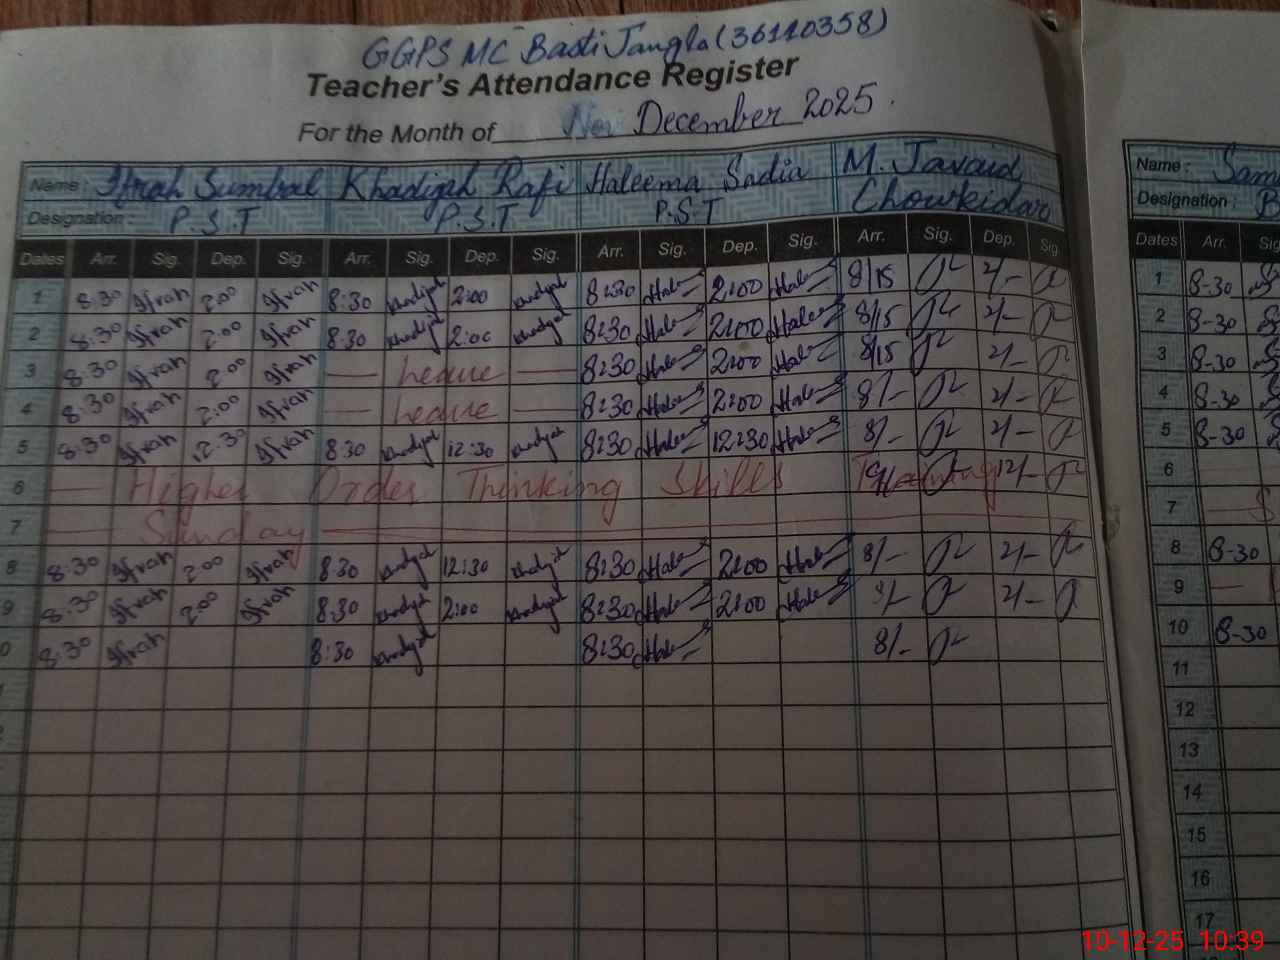 GGPS MC Basti Jangla (36110358)
Teacher's Attendance Register
For the Month of Nov December 2025.
Name: Ifrah Sumbal Khadijah Rafi Haleema Sadia M. Javaid
Designation: P.S.T P.S.T P.S.T Chowkidar
Dates Arr. Sig. Dep. Sig. Arr. Sig. Dep. Sig. Arr. Sig. Dep. Sig. Arr. Sig. Dep. Sig.
1 8:30 Ifrah 2:00 Ifrah 8:30 Khadijah 2:00 Khadijah 8:30 Hale 2:00 Hale 8/15 2/-
2 8:30 Ifrah 2:00 Ifrah 8:30 Khadijah 2:00 Khadijah 8:30 Hale 2:00 Hale 8/15 2/-
3 8:30 Ifrah 2:00 Ifrah — Leave — 8:30 Hale 2:00 Hale 8/15 2/-
4 8:30 Ifrah 2:00 Ifrah — Leave — 8:30 Hale 2:00 Hale 8/- 2/-
5 8:30 Ifrah 12:30 Ifrah 8:30 Khadijah 12:30 Khadijah 8:30 Hale 12:30 Hale 8/- 2/-
6 — Higher Order Thinking Skills Training 12/-
7 — Sunday —
8 8:30 Ifrah 2:00 Ifrah 8:30 Khadijah 12:30 Khadijah 8:30 Hale 2:00 Hale 8/- 2/-
9 8:30 Ifrah 2:00 Ifrah 8:30 Khadijah 2:00 Khadijah 8:30 Hale 2:00 Hale 8/- 2/-
0 8:30 Ifrah 8:30 Khadijah 8:30 Hale 8/-
Name: Sam
Designation: B
Dates Arr. Sig
1 8-30
2 8-30
3 8-30
4 8-30
5 8-30
6
7 — S
8 8-30
9
10 8-30
11
12
13
14
15
16
17
10-12-25 10:39